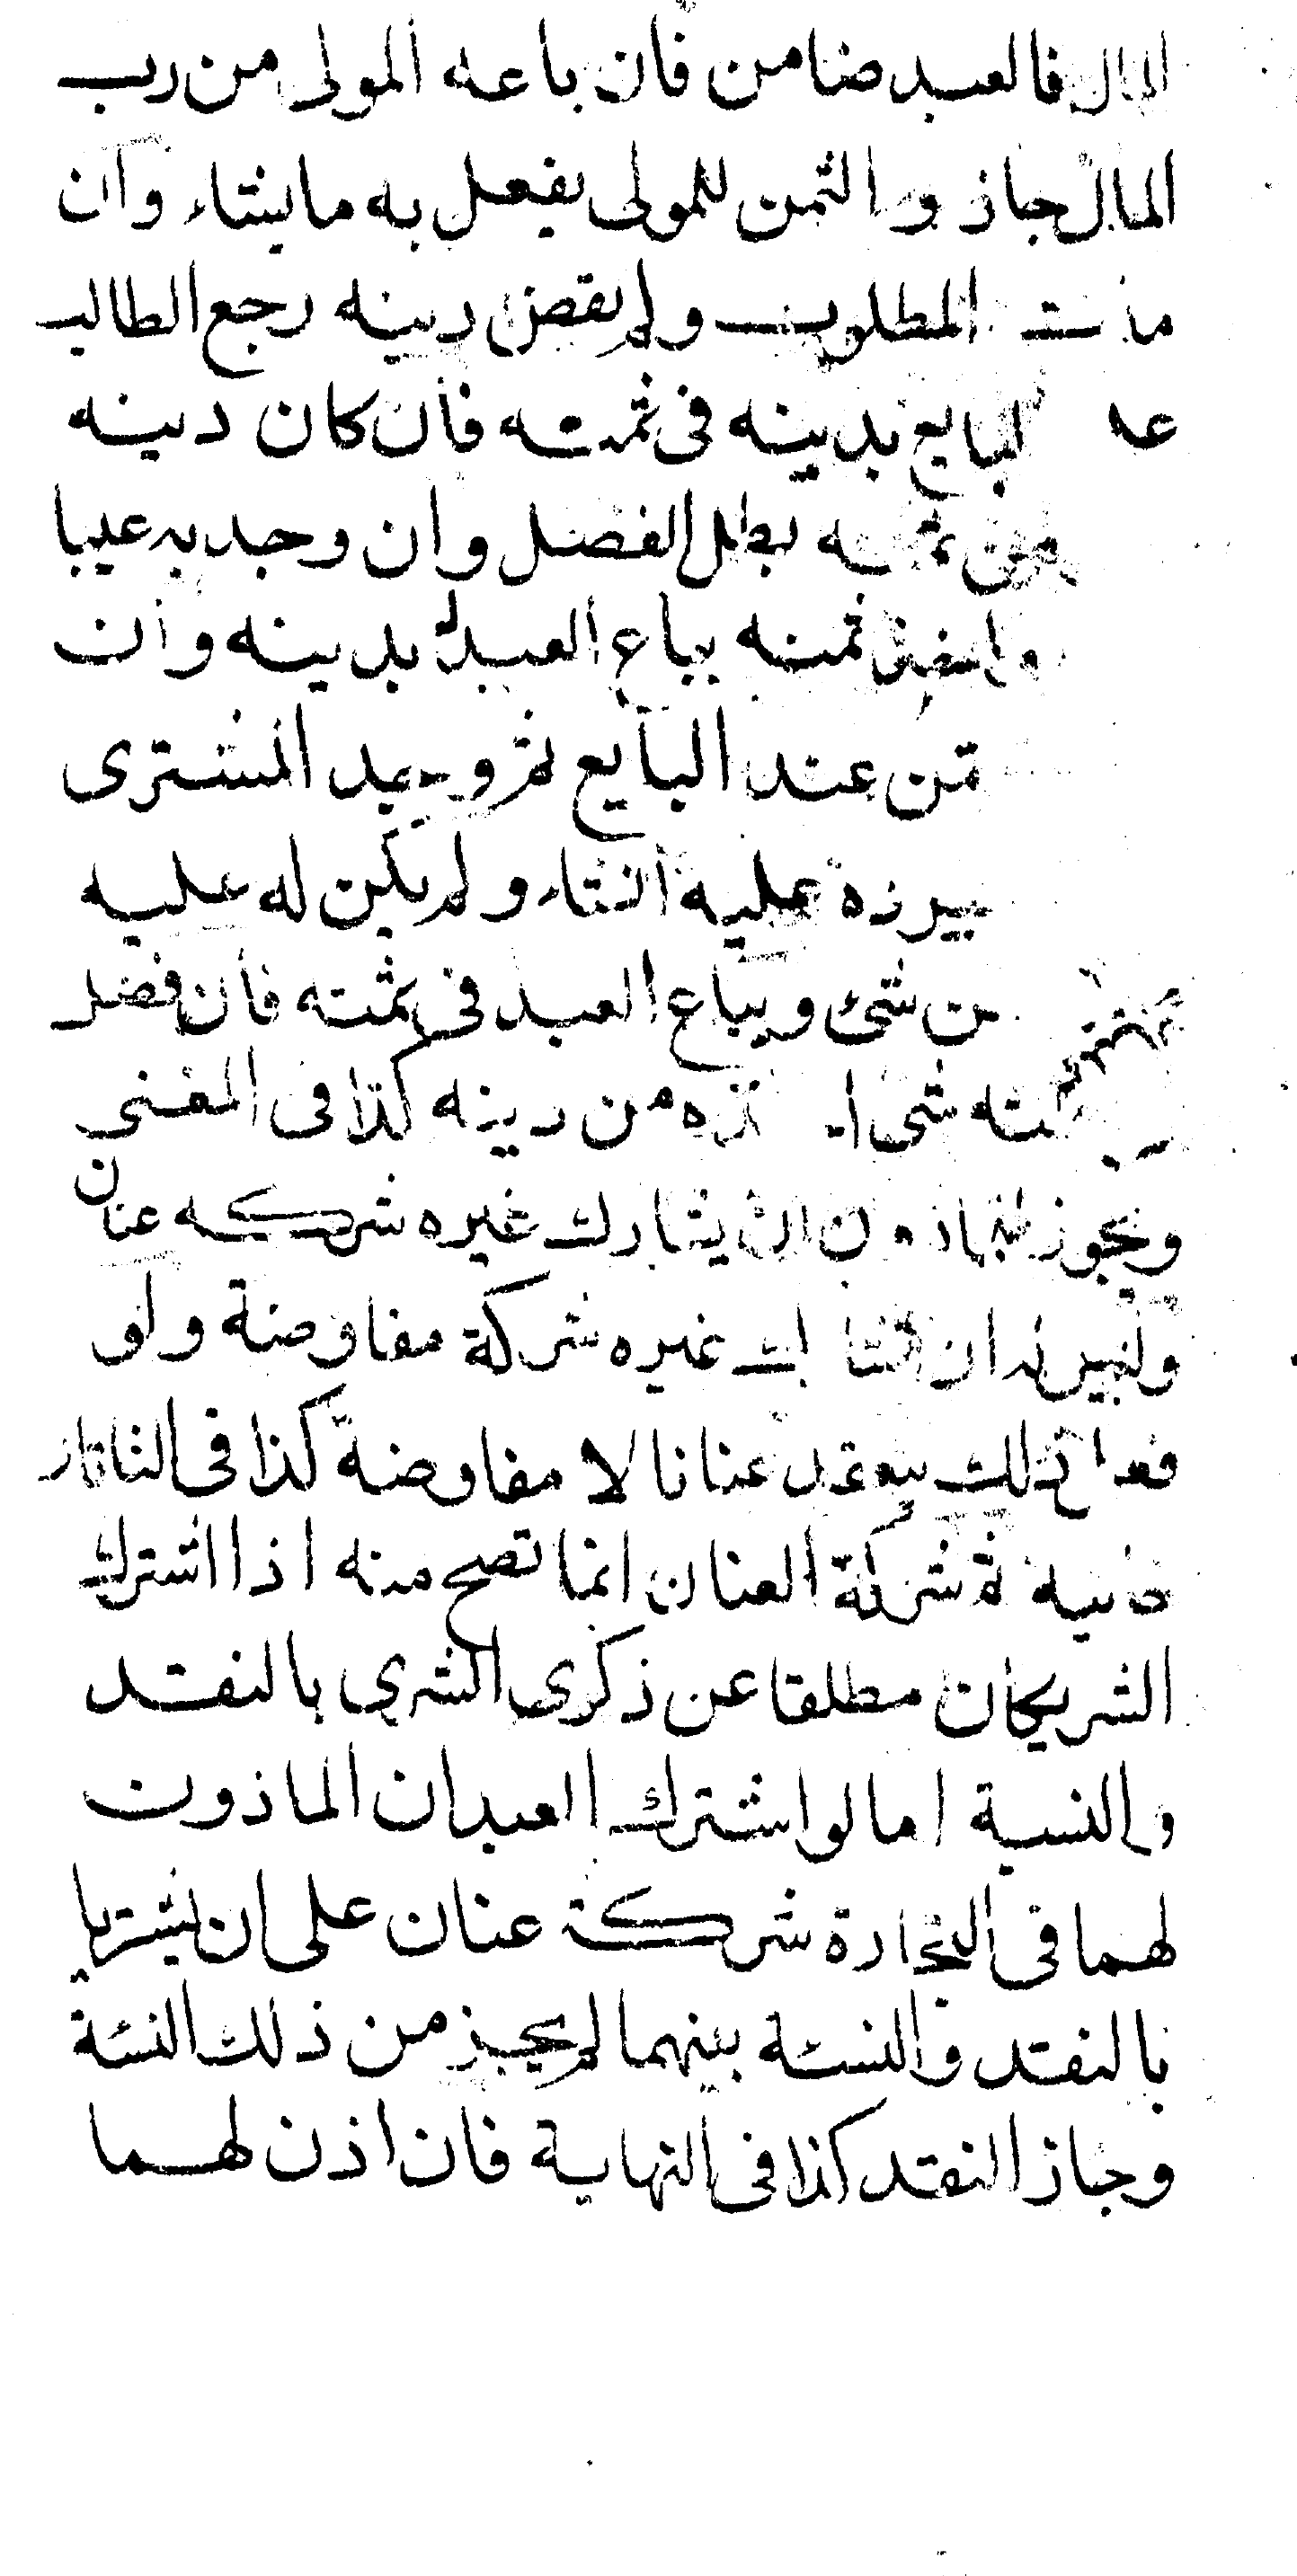 المال فالعبد ضامن فان باعه المولى من رب
المال جاز والثمن للمولى يفعل به ما يشاء وان
مات المطلوب ولم يقض دينه رجع الطالب
البايع بدينه في ثمنه فان كان دينه
من ثمنه بطل الفضل وان وجد به عيبا
ثمنه يباع العبد بدينه وان
من عند البايع ثم وجد المشترى
يرده عليه ان شاء ولم يكن له عليه
من شئ ويباع العبد في ثمنه فان فضل
شئ من دينه كذا فى المغنى
ويجوز للماذون ان يشارك غيره شركه عنان
وليس له ان يشارك غيره شركة مفاوضة ولو
فعل ذلك ينعقد عنانا لا مفاوضة كذا فى التاتار
خانيه ثم شركة العنان انما تصح منه اذا اشترك
الشريكان مطلقا عن ذكرى الشرى بالنقد
والنسية اما لو اشترك العبدان الماذون
لهما فى التجارة شركة عنان على ان يشتريا
بالنقد والنسئة بينهما لم يجز من ذلك النسئة
وجاز النقد كذا فى النهاية فان اذن لهما